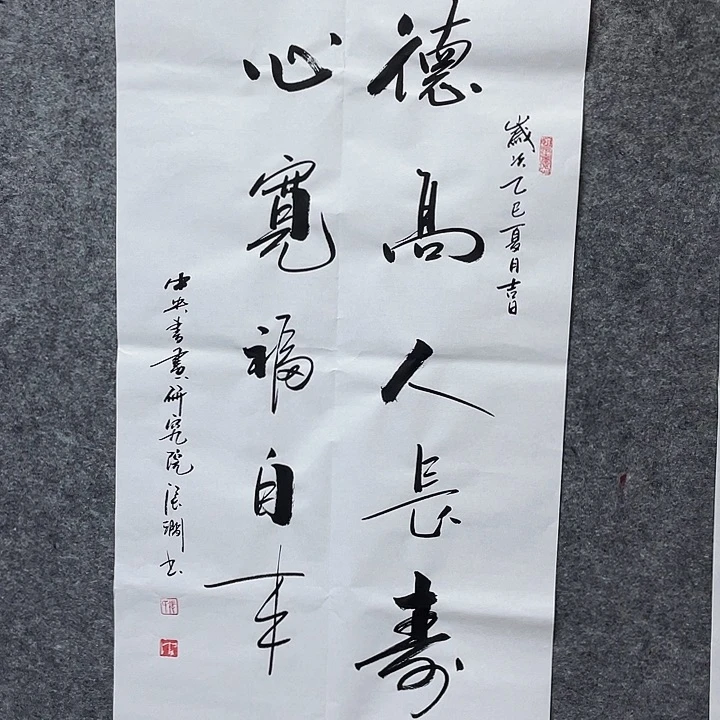 歲次乙巳夏月吉日
德高人長壽
心寬福自来
中央書畫研究院張潤书